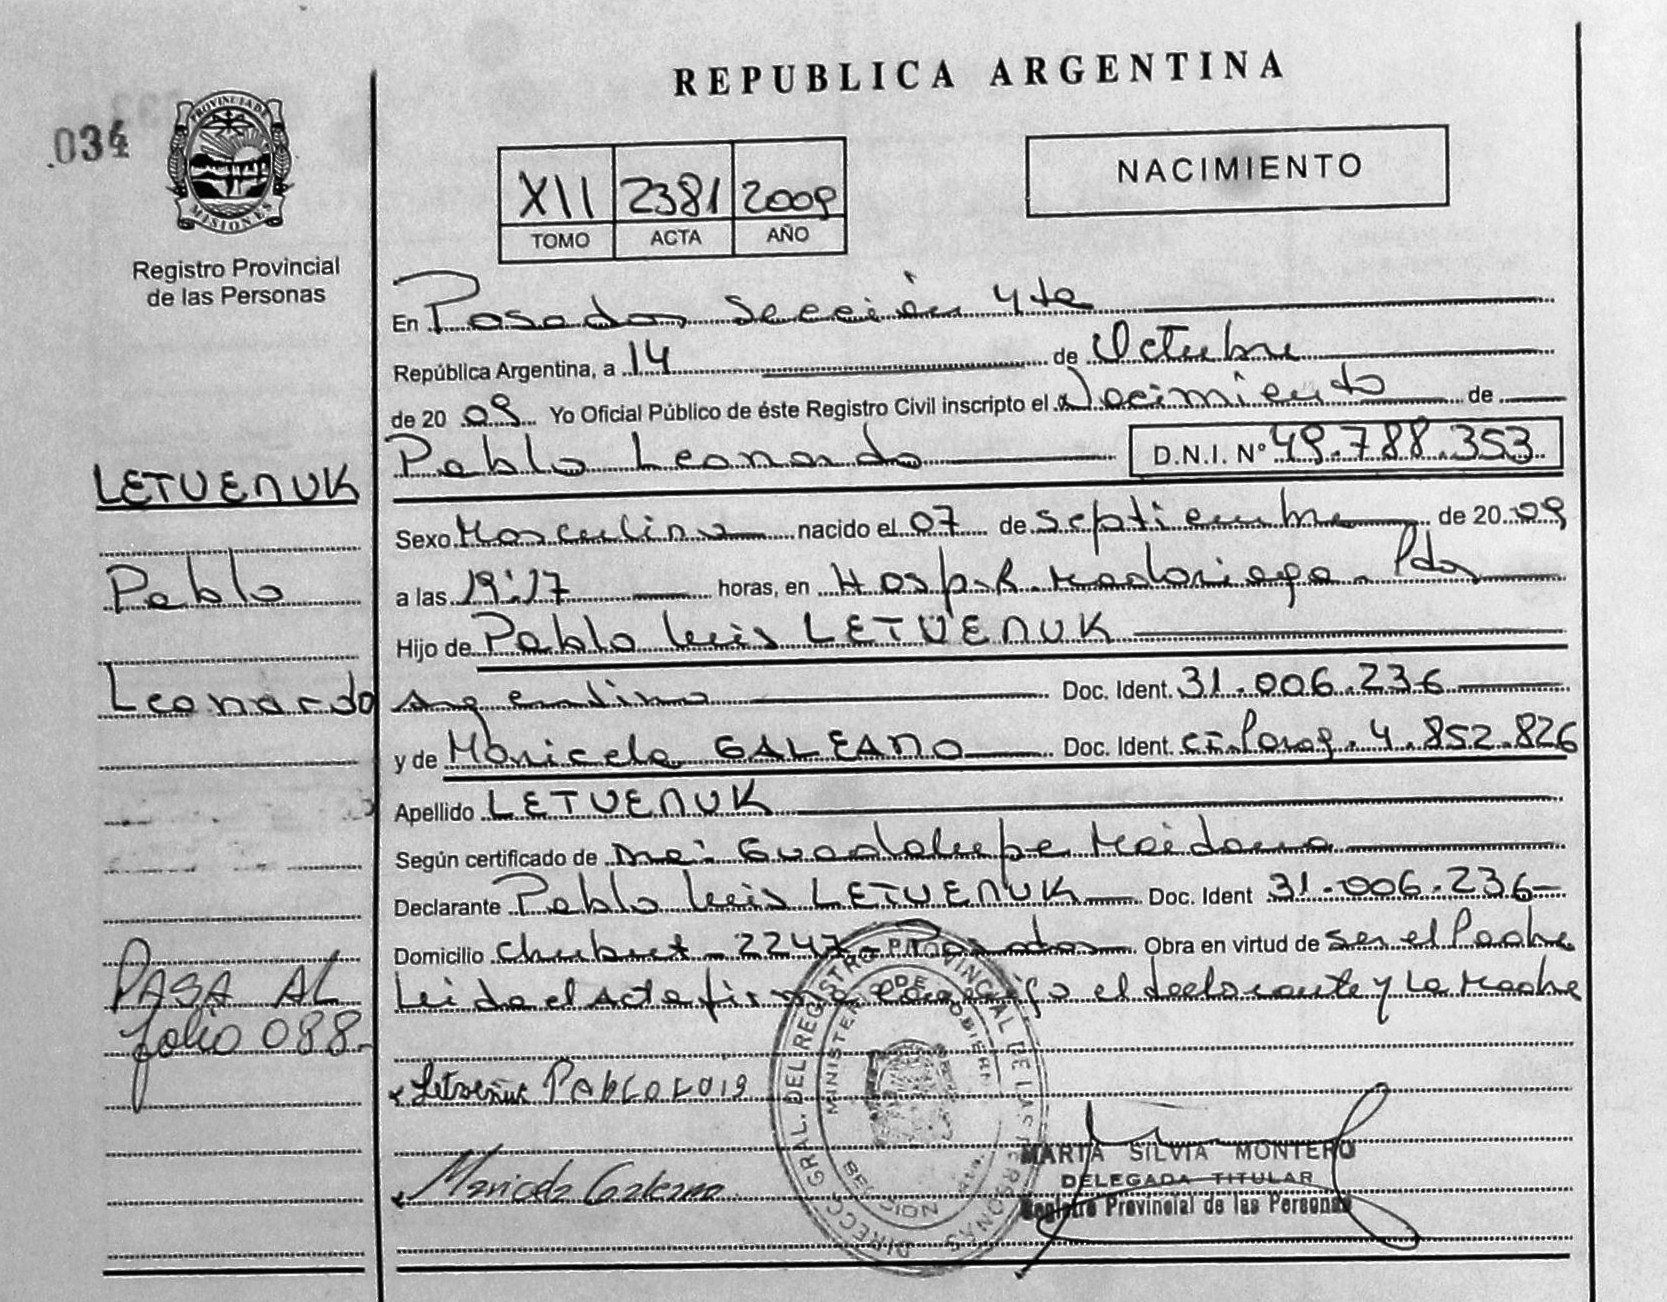 REPUBLICA ARGENTINA
034
PROVINCIA DE
MISIONES
Registro Provincial
de las Personas
XII 2381 2009
TOMO ACTA AÑO
NACIMIENTO
En Posadas Sección 4ta
República Argentina, a 14 de Octubre
de 2009 Yo Oficial Público de éste Registro Civil inscripto el Nacimiento de
Pablo Leonardo D.N.I. Nº 49.788.353
LETVENUK
Pablo
Leonardo
Sexo Masculino nacido el 07 de Septiembre de 2009
a las 19:17 horas, en Hosp. R. Madariaga - Pdas
Hijo de Pablo Luis LETVENUK
Argentino Doc. Ident. 31.006.236
y de Maricela GALEANO Doc. Ident. 4.852.826
Apellido LETVENUK
Según certificado de Guadalupe Maidana
Declarante Pablo Luis LETVENUK Doc. Ident 31.006.236
Domicilio Chubut - 2247 - Posadas Obra en virtud de ser el Padre
Leida el Acta firma conmigo el declarante y la Madre
PASA AL
folio 088
PABLO LUIS
Maricela Galeano
DIRECC. GRAL. DEL REGISTRO PROVINCIAL DE LAS PERSONAS
MINISTERIO DE GOBIERNO
SECCION 4ta.
MARIA SILVIA MONTERO
DELEGADA TITULAR
Registro Provincial de las Personas